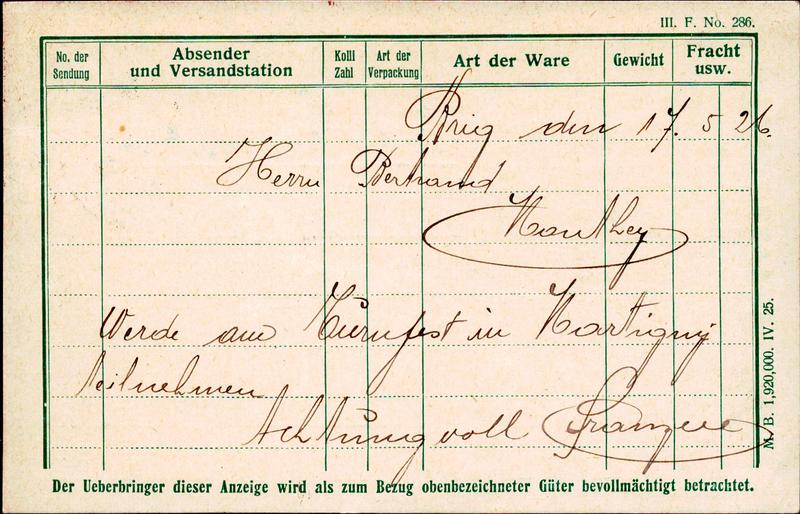 III. F. No. 286.
No. der Sendung
Absender und Versandstation
Kolli Zahl
Art der Verpackung
Art der Ware
Gewicht
Fracht usw.
Brig den 17. 5 26.
Herrn Bertrand
Monthey
Werde am Turnfest in Martigny
teilnehmen
Achtungvoll
M. B. 1,920,000. IV. 25.
Der Ueberbringer dieser Anzeige wird als zum Bezug obenbezeichneter Güter bevollmächtigt betrachtet.